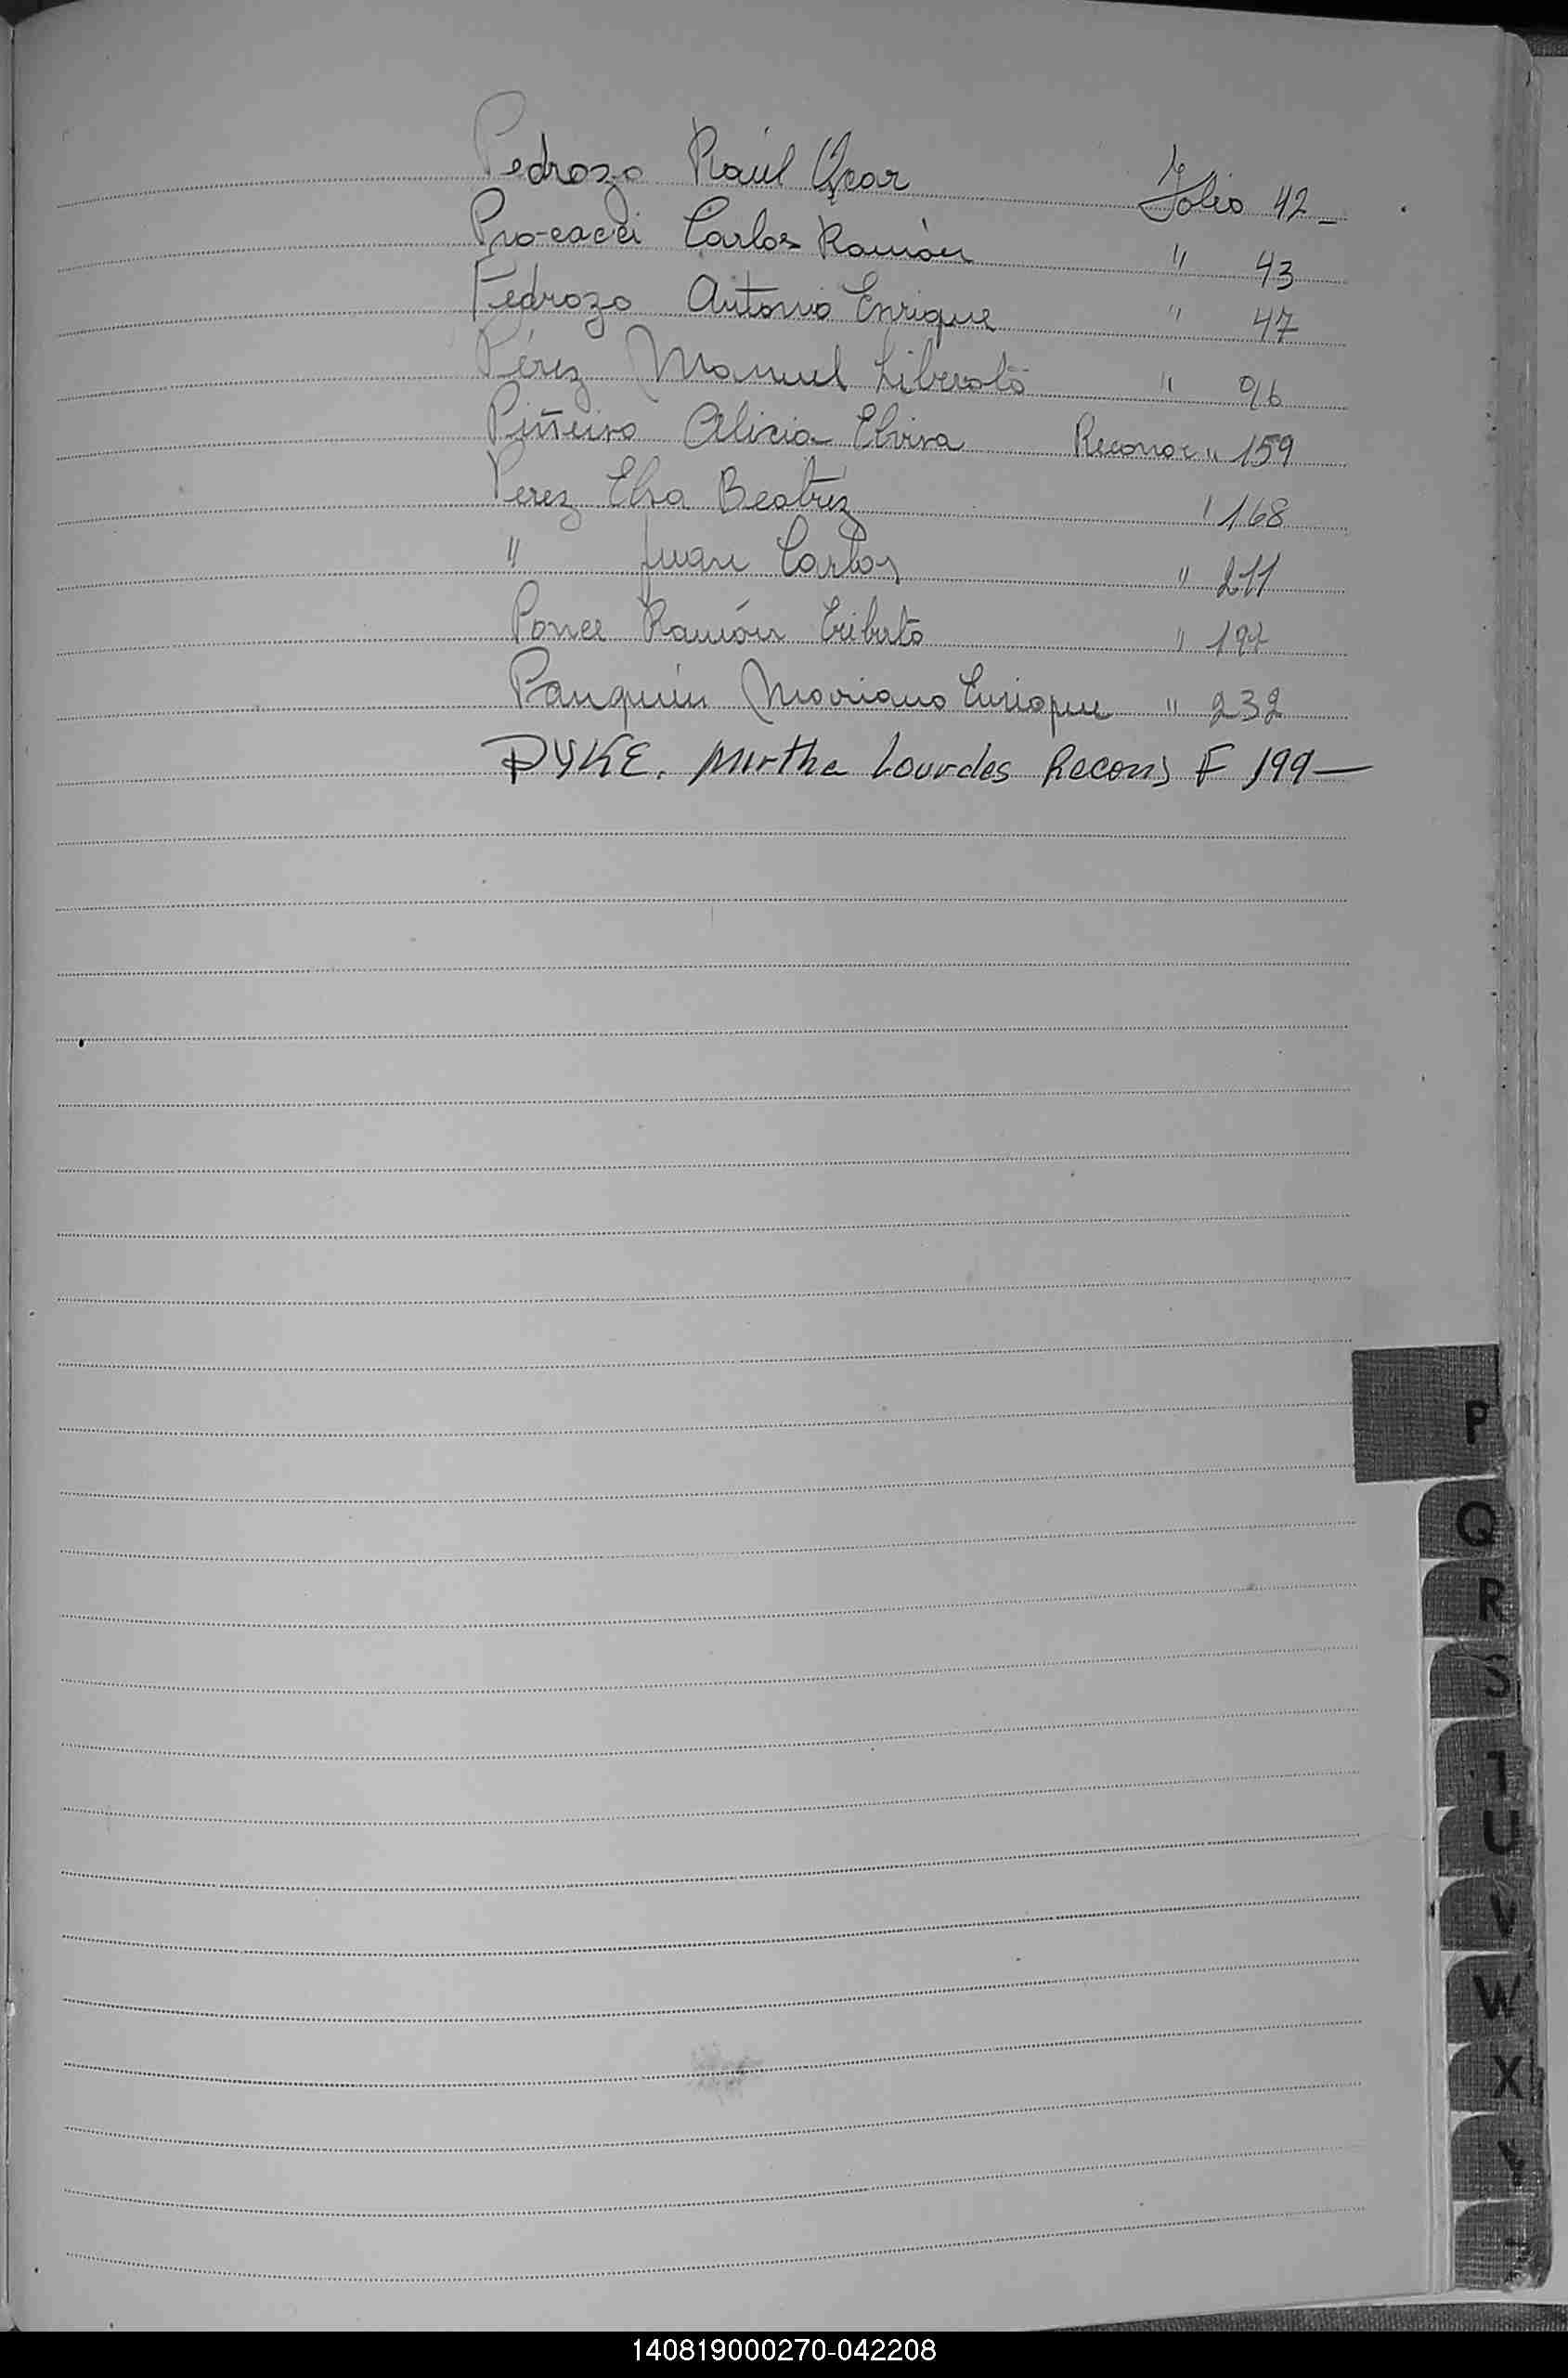 Pedrozo Raúl Oscar Folio 42 -
Procacci Carlos Ramón " 43
Pedrozo Antonio Enrique " 47
Pérez Manuel Liberato " 96
Piñeiro Alicia Elvira Reconoc " 159
Perez Elsa Beatriz " 168
" Juan Carlos " 211
Ponce Ramón Eriberto "
Panquin Mariano Enrique " 232
PYKE. Mirtha Lourdes Recons F 199 —
P
Q
R
S
T
U
V
W
X
Y
140819000270-042208